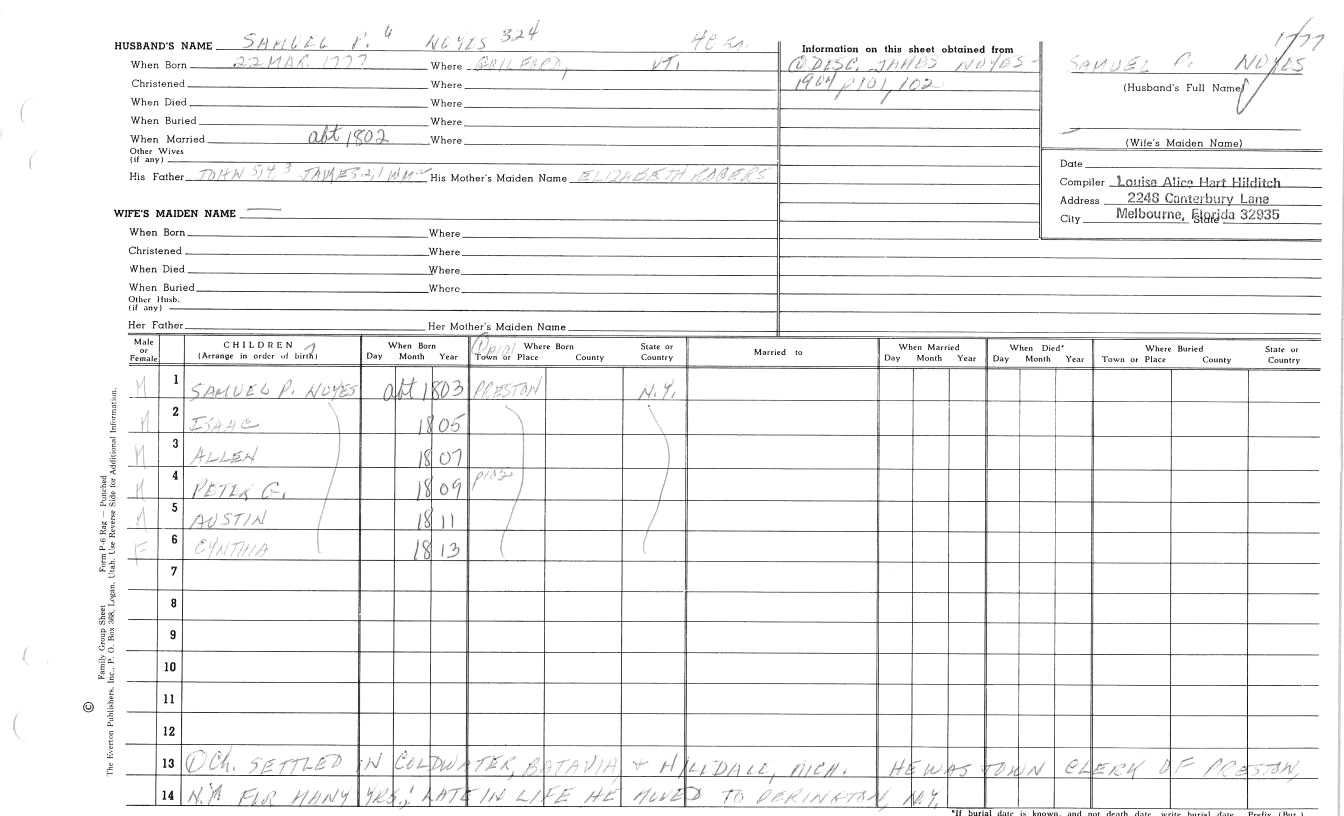 1777
HUSBAND'S NAME SAMUEL P. 6 NOYES 324
When Born 22 MAR 1777 Where GUILFORD, VT.
Christened Where
When Died Where
When Buried Where
When Married abt 1802 Where
Other Wives
(if any)
His Father JOHN 5, 4 3 JAMES 2, 1 His Mother's Maiden Name ELIZABETH ROGERS
WIFE'S MAIDEN NAME
When Born Where
Christened Where
When Died Where
When Buried Where
Other Husb.
(if any)
Her Father Her Mother's Maiden Name
Information on this sheet obtained from
① DESC. JAMES NOYES -
1904 p101, 102
SAMUEL P. NOYES
(Husband's Full Name)
(Wife's Maiden Name)
Date
Compiler Louise Alice Hart Hilditch
Address 2248 Canterbury Lane
City Melbourne, Florida 32935 State
Male or Female
CHILDREN 7
(Arrange in order of birth)
When Born
Day Month Year
Where Born
Town or Place County
State or Country
Married to
When Married
Day Month Year
When Died*
Day Month Year
Where Buried
Town or Place County
State or Country
M 1 SAMUEL P. NOYES abt 1803 PRESTON N.Y.
M 2 ISAAC 1805
M 3 ALLEN 1807
M 4 PETER G. 1809 p102
M 5 AUSTIN 1811
F 6 CYNTHIA 1813
7
8
9
10
11
12
13 ① Ch. SETTLED IN COLDWATER, BATAVIA + HILLDALL, MICH. HE WAS TOWN CLERK OF PRESTON,
14 N.Y. FOR MANY YRS; LATE IN LIFE HE MOVED TO PERINGTON, N.Y.
*If burial date is known, and not death date, write burial date Prefix (Bur.)
Family Group Sheet Form P-6 Rag — Punched
© The Everton Publishers, Inc., P. O. Box 368, Logan, Utah. Use Reverse Side for Additional Information.